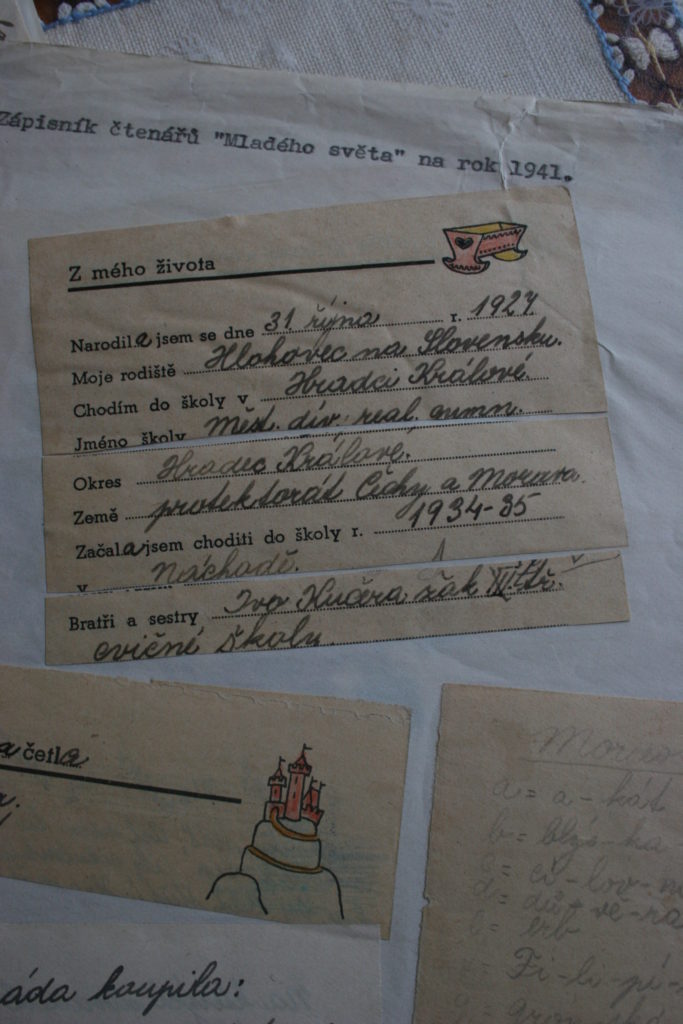 Zápisník čtenářů "Mladého světa" na rok 1941.
Z mého života
Narodila jsem se dne 31. října r. 1927
Moje rodiště Hlohovec na Slovensku.
Chodím do školy v Hradci Králové.
Jméno školy Měst. dív. real. gymn.
Okres Hradec Králové.
Země protektorát Čechy a Morava.
Začala jsem choditi do školy r. 1934-35
v Náchodě.
Bratři a sestry Ivo Kučera žák III. tř.
cvičné školy.
a četla
áda koupila:
a = a - kát
b = blýs-ka
c = cí - lov - n
d = dů - vě - ra
e = erb
Fi - li - pí -